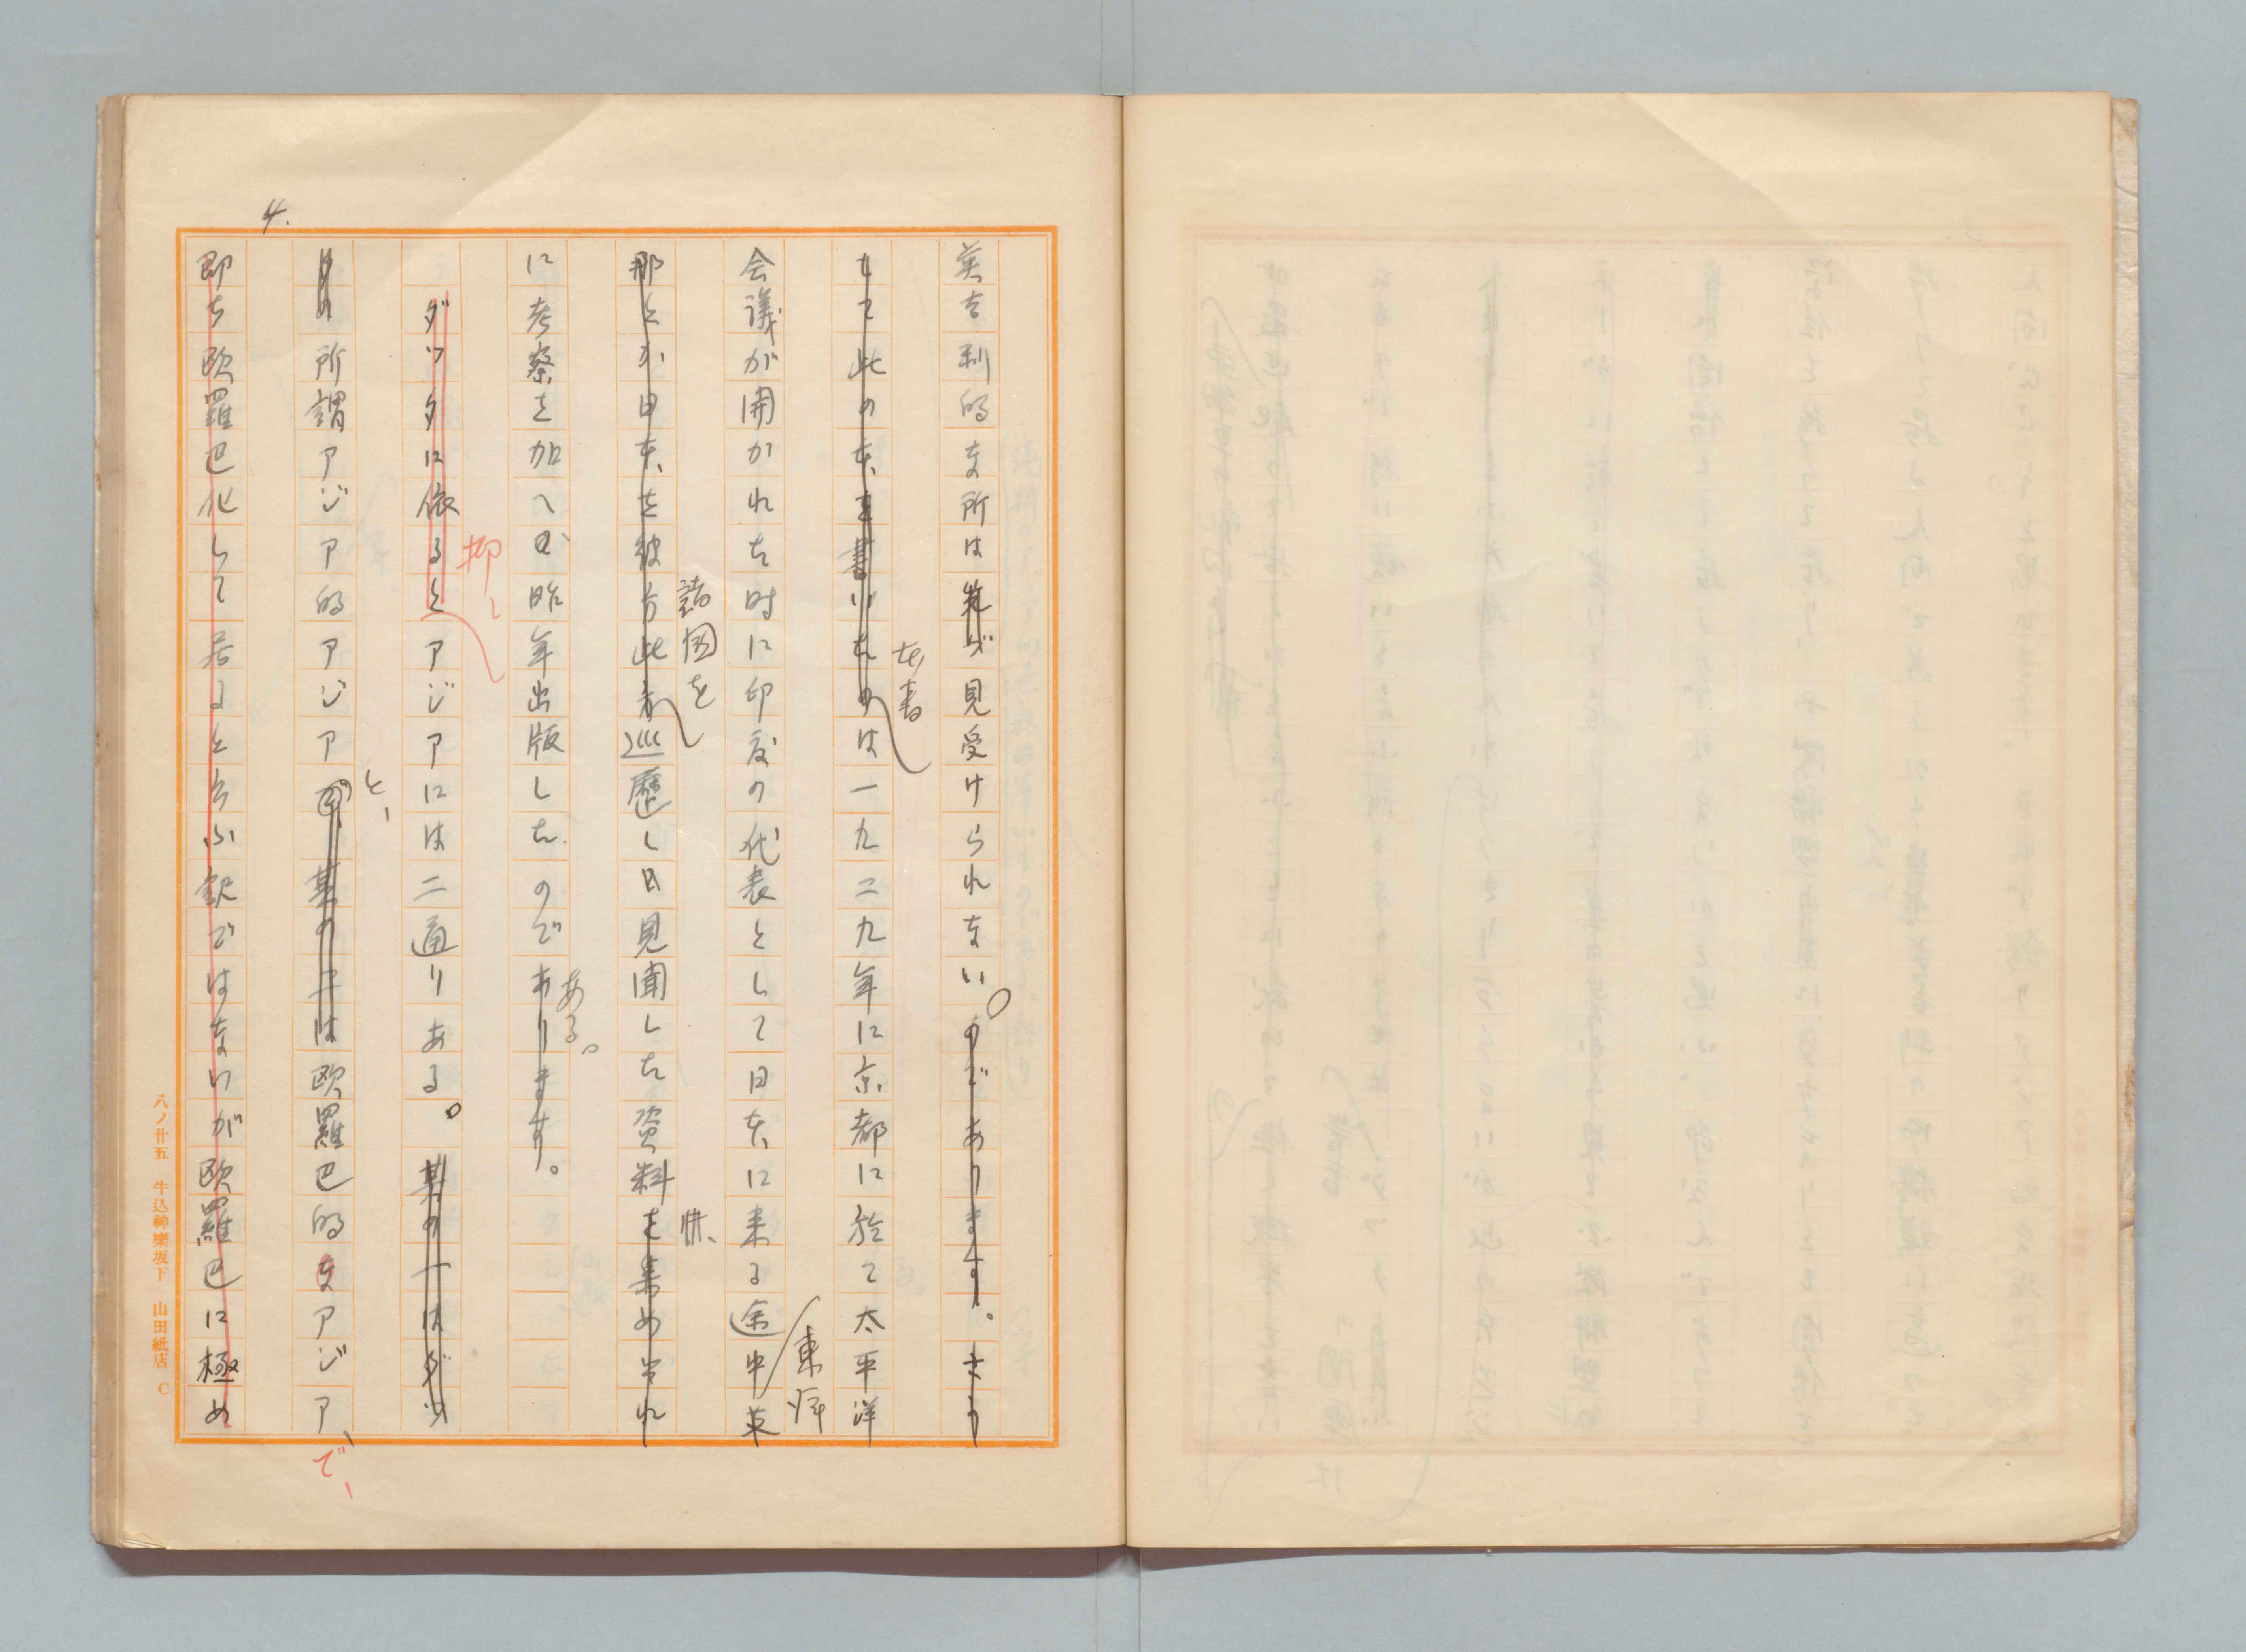 4.
英吉利的な所は殆ど見受けられない。のであります。さう
して此の本を書いたのは一九二九年に京都に於て太平洋
本書
会議が開かれた時に印度の代表として日本に来る途中英
東洋
那とか日本を彼方此方巡歴し日見聞した資料を集められ
諸国を
供、
に考察を加へ昨年出版したのであります。
ある。
ダツタに依るとアジアには二通りある。其の一はダツ
抑〻
タの所謂アジア的アジアで其の二は欧羅巴的なアジア、
と、
で、
即ち欧羅巴化して居ると云ふ訳ではないが欧羅巴に極め
八ノ廿五 牛込神楽坂下 山田紙店 C